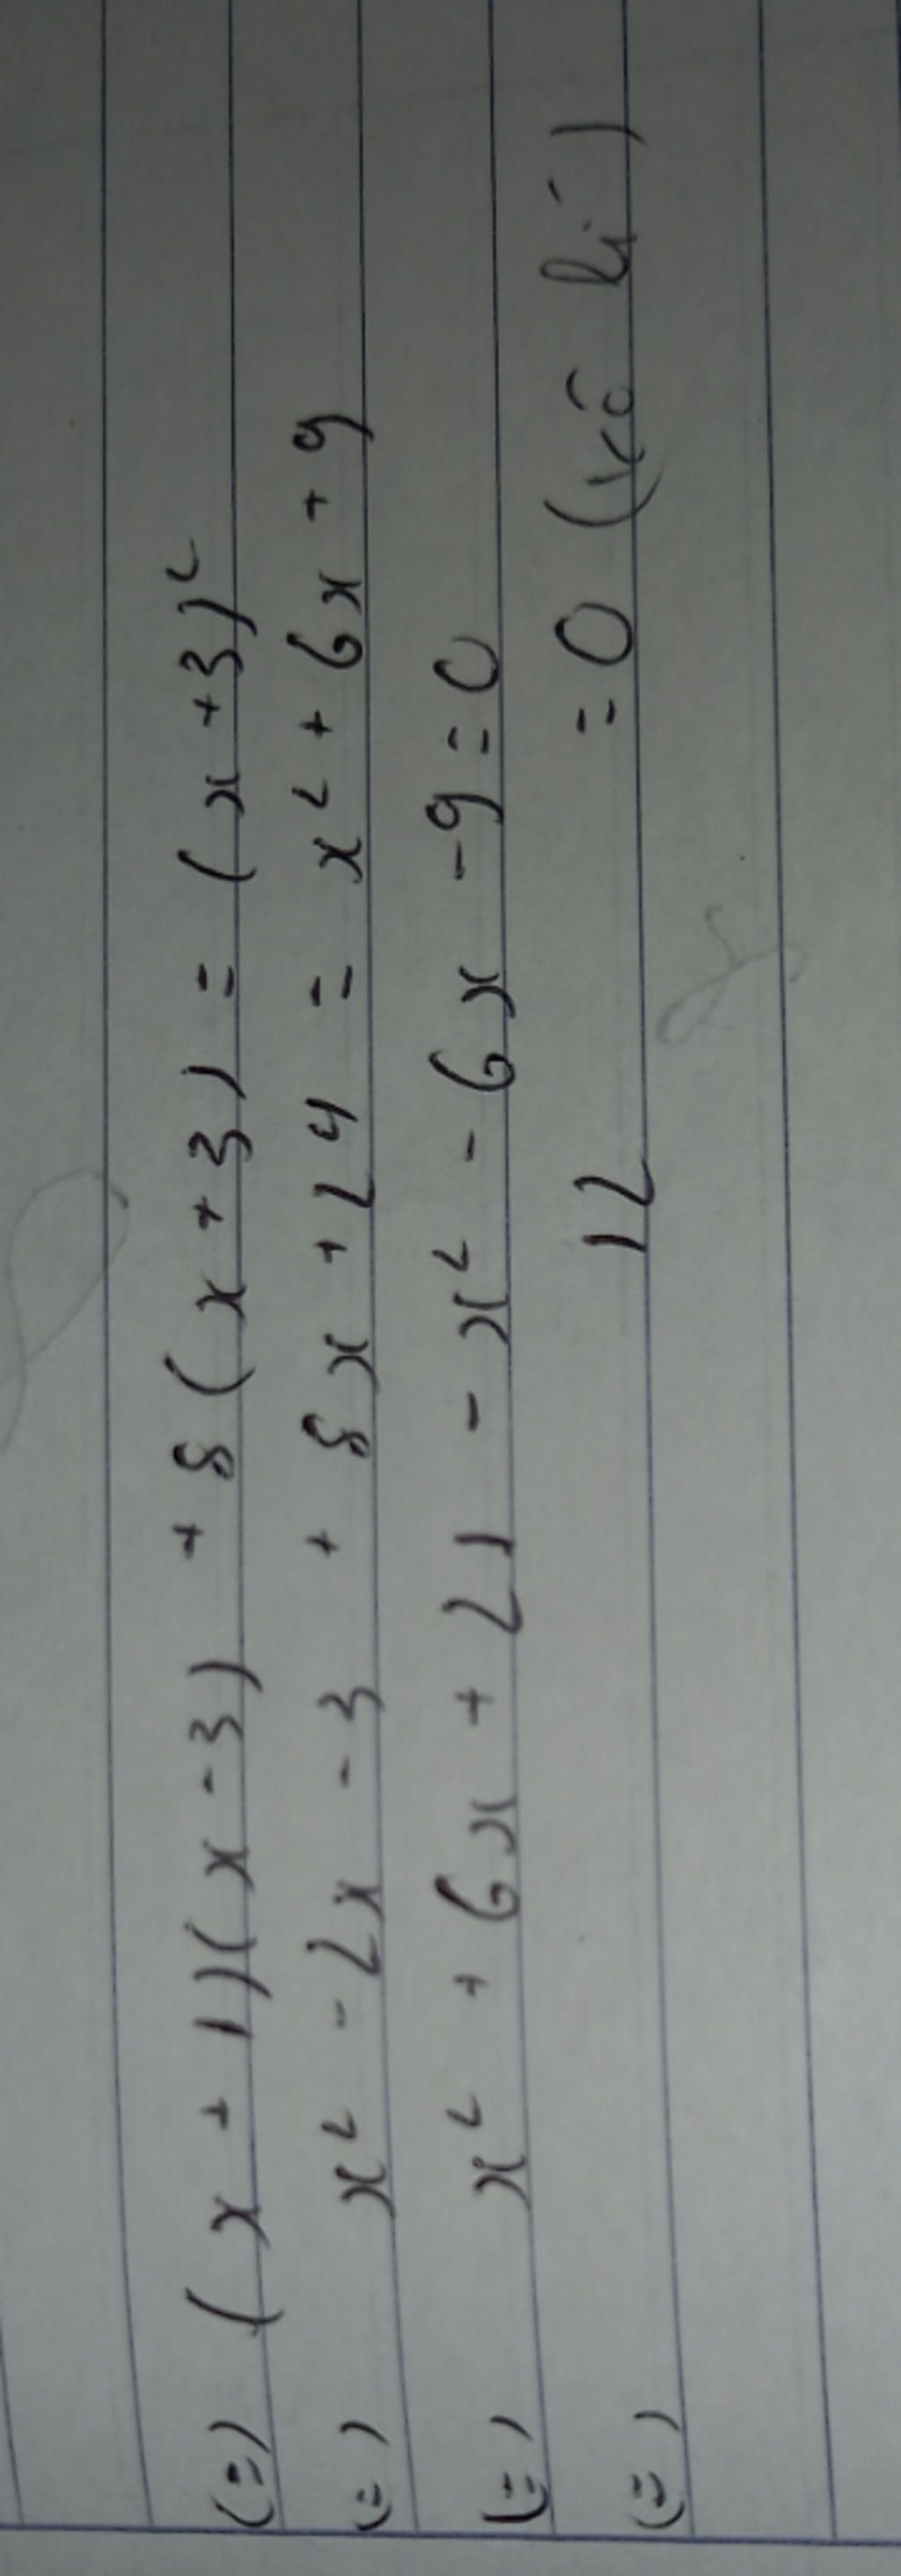 (=) (x + 1)(x - 3) + 8(x + 3) = (x + 3)²
(=) x² - 2x - 3 + 8x + 24 = x² + 6x + 9
(=) x² + 6x + 21 - x² - 6x - 9 = 0
(=) 12 = 0 (vô lí)